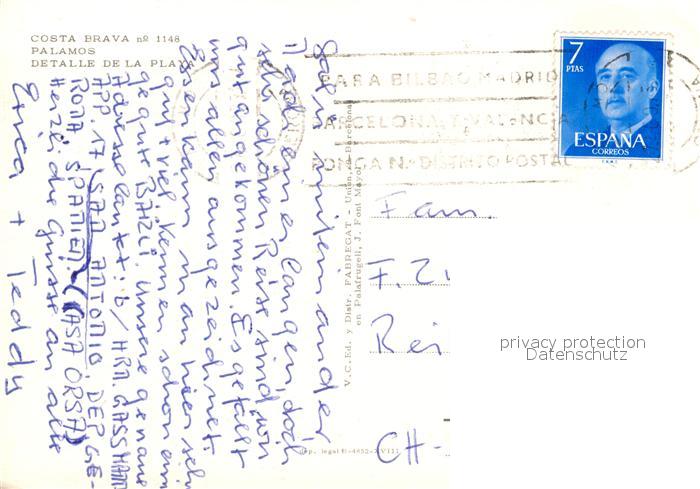 COSTA BRAVA nº 1148
PALAMOS
DETALLE DE LA PLAYA
Salü mitenander
Nach einer langen, doch
sehr schönen Reise sind wir
gut angekommen. Es gefällt
uns allen ausgezeichnet.
Essen kann man hier sehr
gut + viel. Kennen schon ein
Unsere genaue
Adresse lautet: b/ HRN. GASSMANN
APP. 17 (SAN ANTONIO) DEP GE-
RONA SPANIEN. (CASA ORSA)
Herzliche Grüsse an alle
Erica + Teddy
V. C. Ed. y Distr. FABREGAT - Unión, Barcelona
en Palafrugell, J. Font Mayor
Dep. legal B-4852-XVIII
PARA BILBAO MADRID
BARCELONA Y VALENCIA
PONGA Nº DISTRITO POSTAL
7
PTAS
ESPAÑA
CORREOS
Fam.
F. Zi
Rei
CH-
privacy protection
Datenschutz